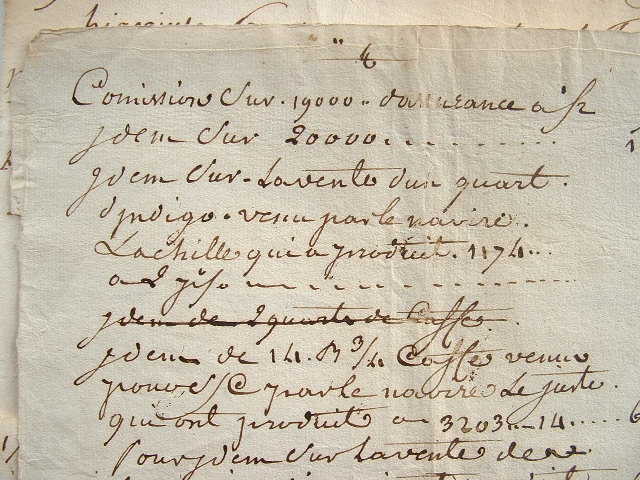 Comission Sur . 19000 .. dassurance a
jdem Sur 20000 . . . . . . . . .
jdem Sur Lavente dun quart .
djndigo . venu par le navire .
Lachille qui a produit . 1174 ...
a 2
jdem de 2 quarts de Caffé .
jdem de 14. B 3/4 Caffé venu
pour par le navire Le juste .
qui ont produit a 3203 .. 14 ..... 6
Pour jdem Sur Lavente de